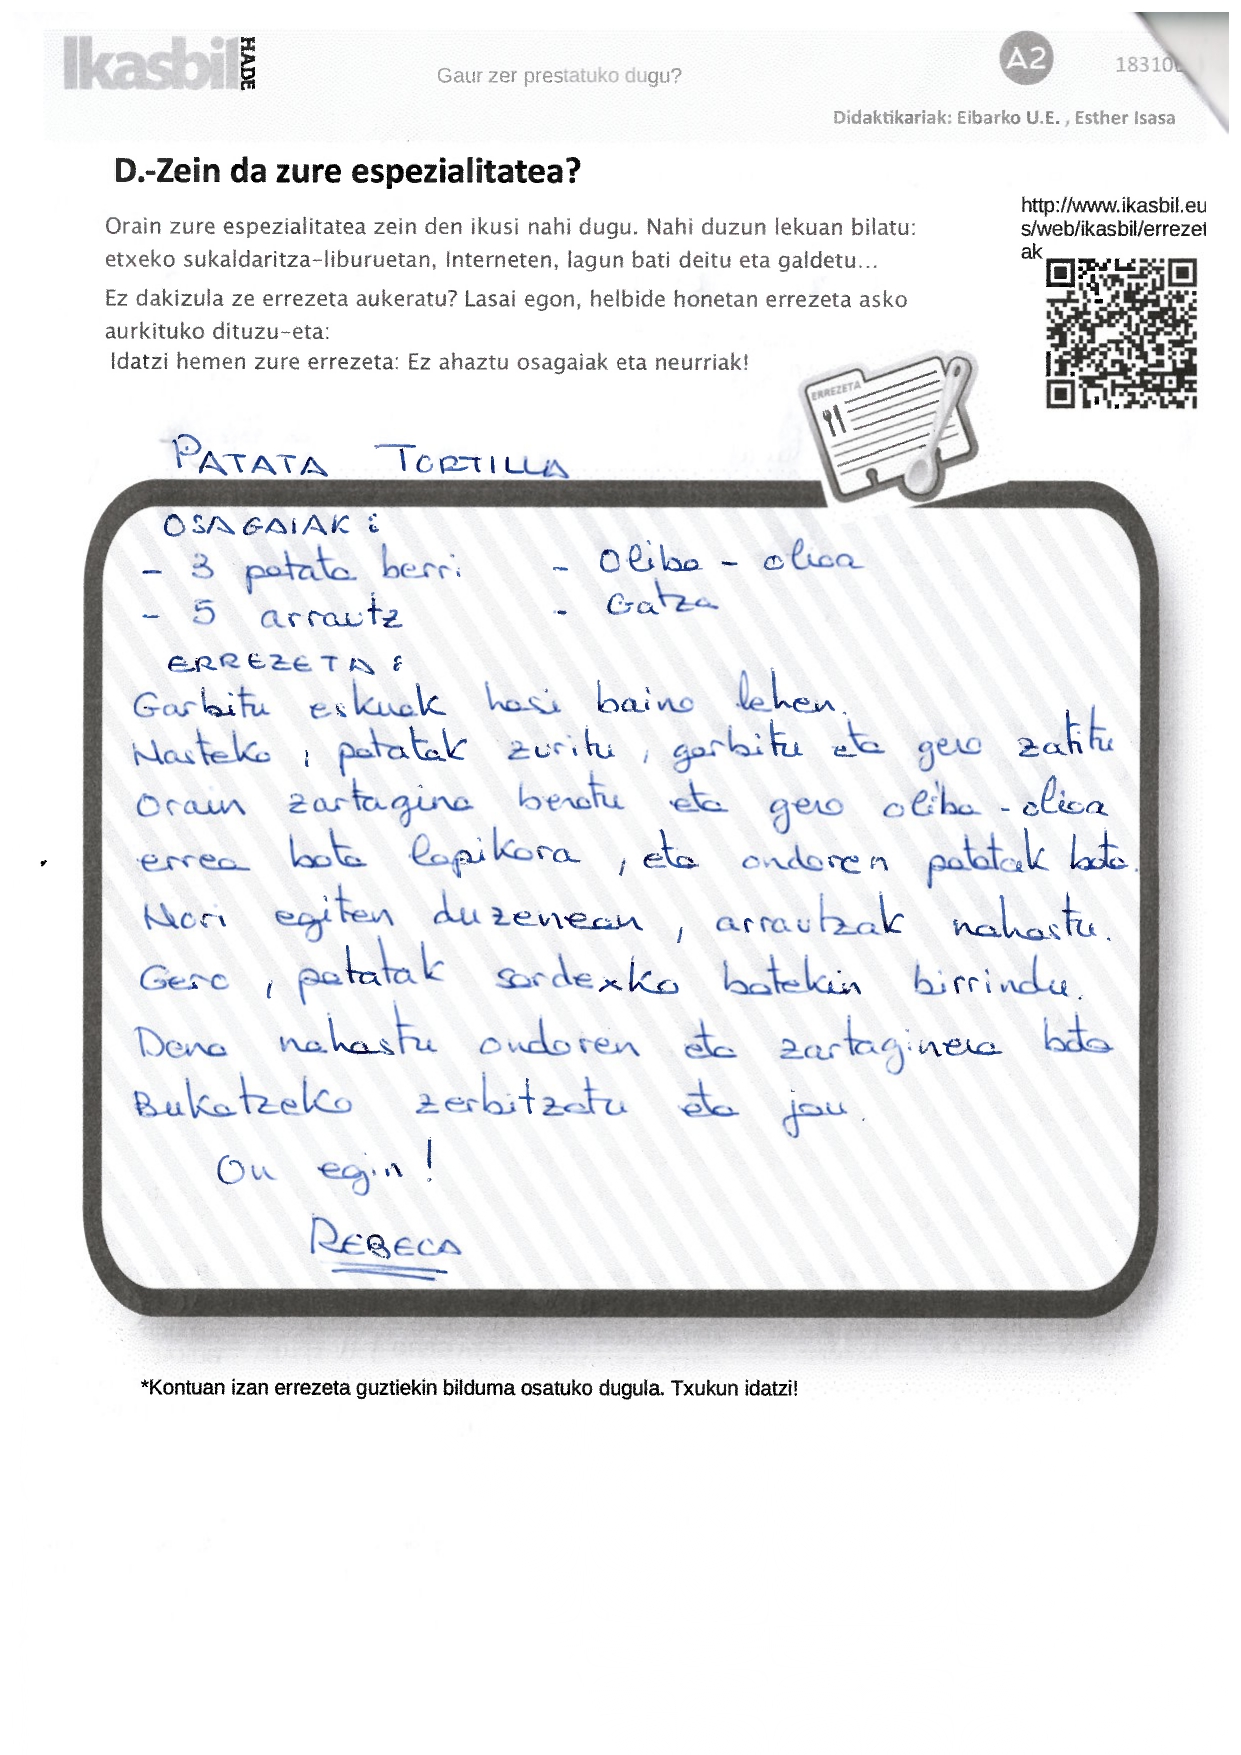 Ikasbil HADE
Gaur zer prestatuko dugu?
A2
18310
Didaktikariak: Eibarko U.E. , Esther Isasa
D.-Zein da zure espezialitatea?
Orain zure espezialitatea zein den ikusi nahi dugu. Nahi duzun lekuan bilatu:
etxeko sukaldaritza-liburuetan, Interneten, lagun bati deitu eta galdetu...
Ez dakizula ze errezeta aukeratu? Lasai egon, helbide honetan errezeta asko
aurkituko dituzu-eta:
Idatzi hemen zure errezeta: Ez ahaztu osagaiak eta neurriak!
http://www.ikasbil.eu
s/web/ikasbil/errezet
ak
ERREZETA
PATATA TORTILLA
OSAGAIAK :
- 3 patata berri - Oliba - olioa
- 5 arrautz - Gatza
ERREZETA :
Garbitu eskuak hasi baino lehen.
Hasteko , patatak zuritu , garbitu eta gero zatitu
Orain zartagina berotu eta gero oliba - olioa
errea bota lapikora , eta ondoren patatak bota.
Hori egiten duzenean , arrautzak nahastu.
Gero , patatak sardexko batekin birrindu.
Dena nahastu ondoren eta zartaginera bota
Bukatzeko zerbitzatu eta jan.
On egin !
REBECA
*Kontuan izan errezeta guztiekin bilduma osatuko dugula. Txukun idatzi!